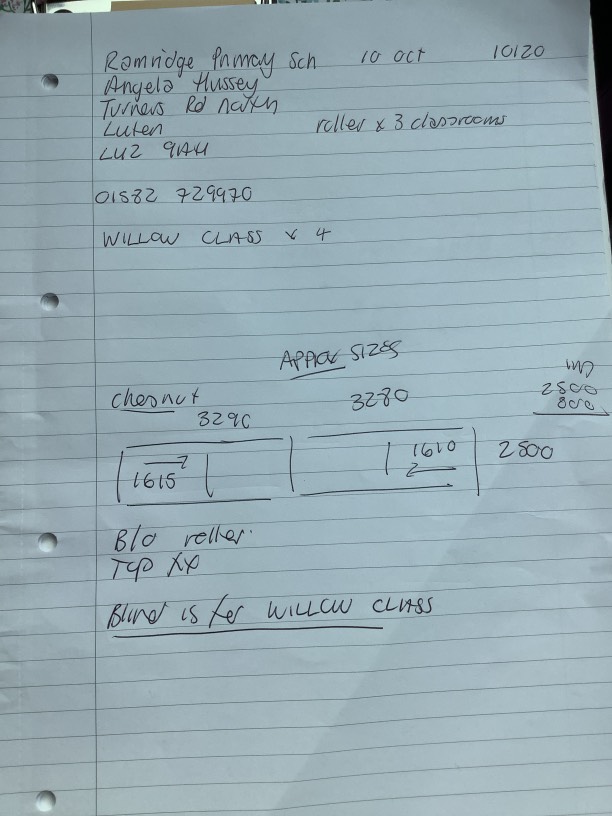 Ramridge Primary Sch 10 Oct 10120
Angela Hussey
Turners Rd North
Luton roller x 3 classrooms
LU2 9AH
01582 729970
WILLOW CLASS x 4
APPROX SIZES
chesnut 3280
3290
2500
800
1615 1610 2500
B/O roller.
Top
Blind is for WILLOW CLASS